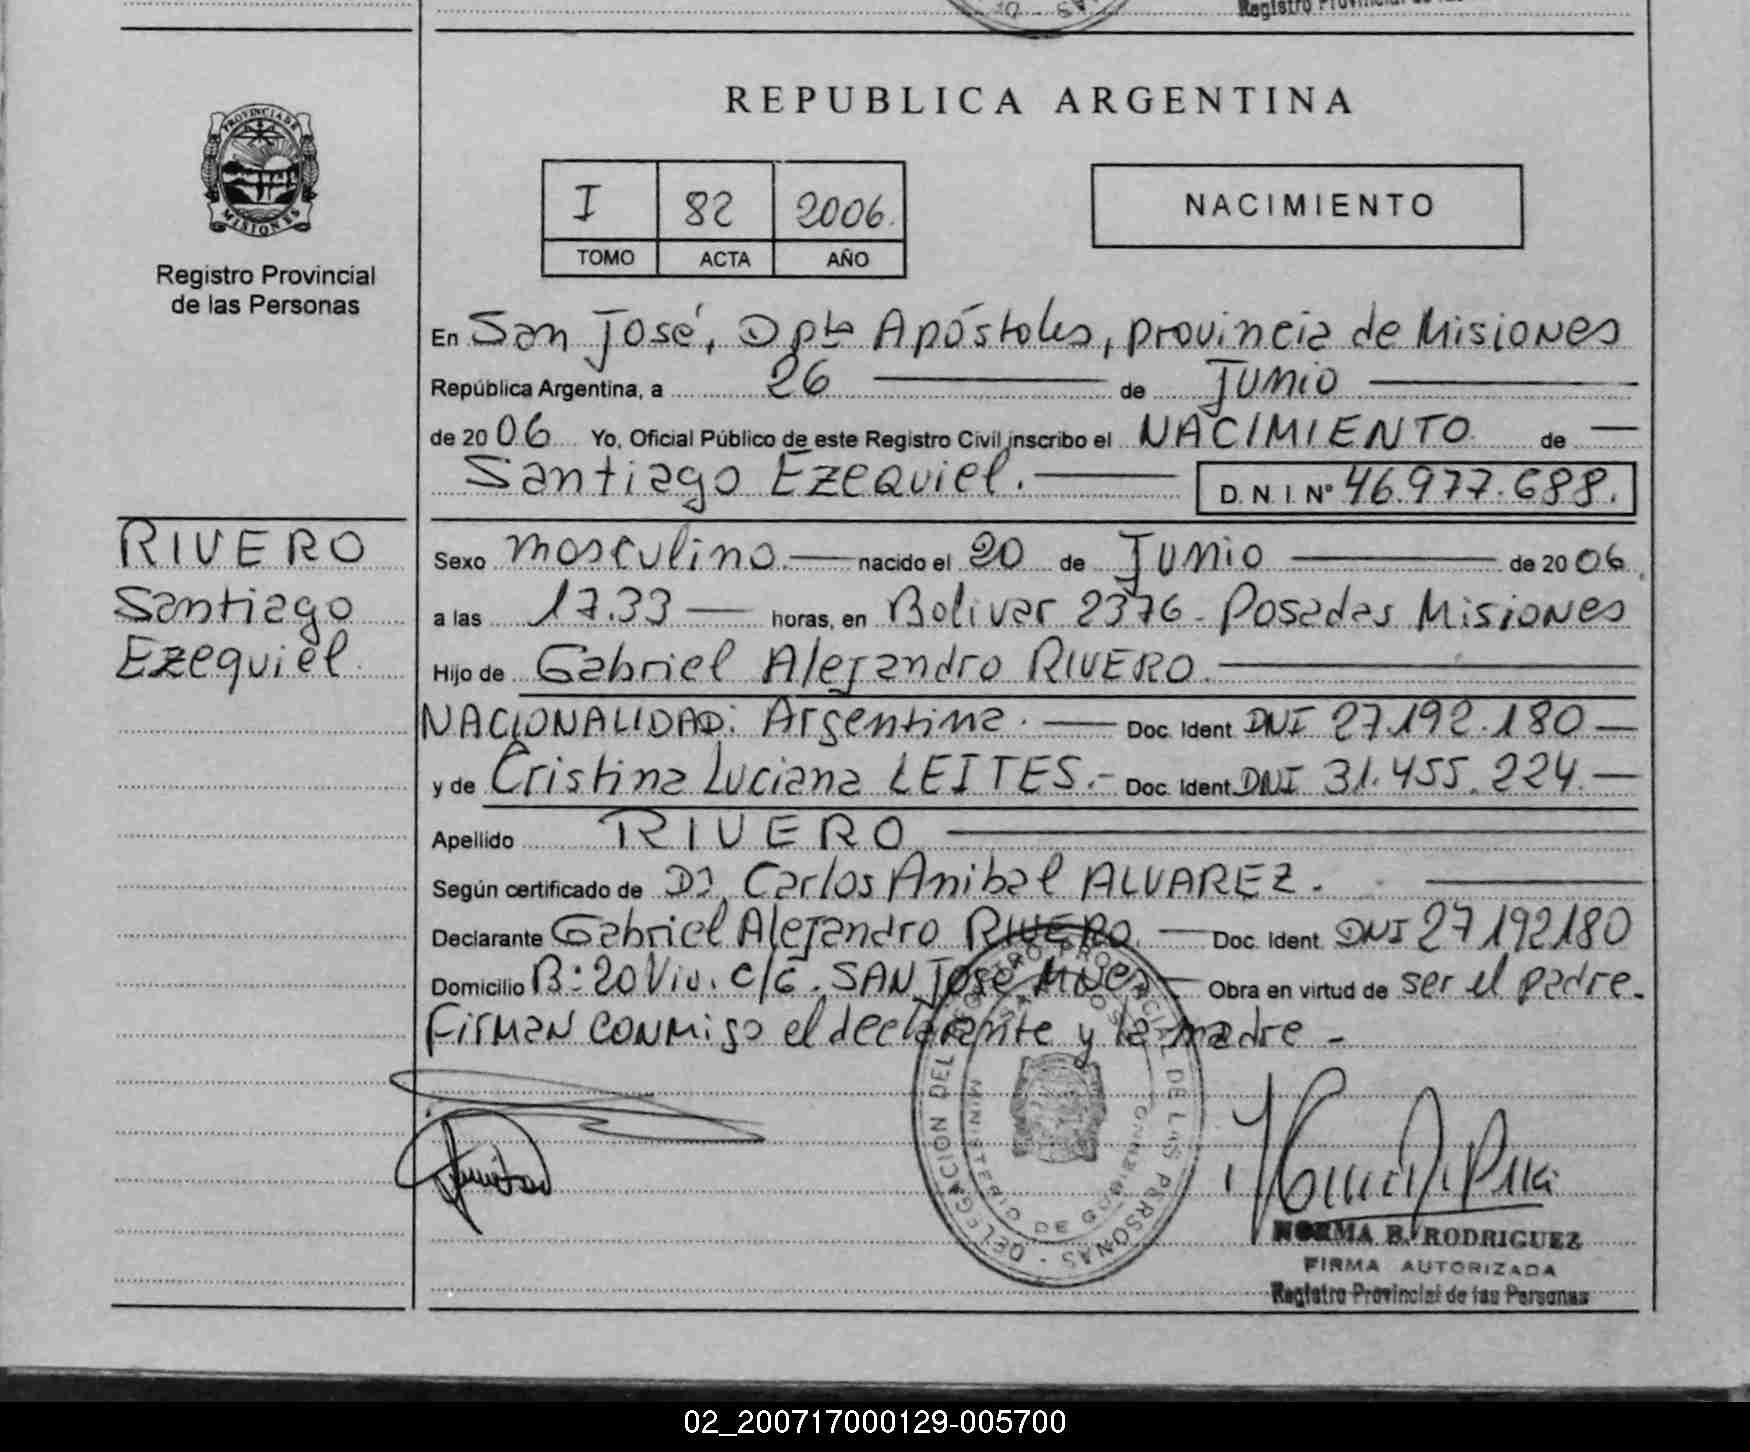 Registro Provincial de las
REPUBLICA ARGENTINA
PROVINCIA DE
MISIONES
Registro Provincial
de las Personas
I 82 2006.
TOMO ACTA AÑO
NACIMIENTO
En San José, Dpto Apóstoles, provincia de Misiones
República Argentina, a 26 de Junio
de 2006 Yo, Oficial Público de este Registro Civil inscribo el NACIMIENTO de
Santiago Ezequiel. D.N.I. Nº 46.977.688.
RIVERO
Santiago
Ezequiel
Sexo masculino nacido el 20 de Junio de 2006
a las 17.33 horas, en Bolivar 2376 - Posadas Misiones
Hijo de Gabriel Alejandro RIVERO
NACIONALIDAD: Argentina. Doc. Ident. DNI 27.192.180
y de Cristina Luciana LEITES.- Doc. Ident. DNI 31.455.224.
Apellido RIVERO
Según certificado de Dr. Carlos Anibal ALVAREZ.
Declarante Gabriel Alejandro RIVERO. Doc. Ident. DNI 27192180
Domicilio B: 20 Viv. c/6. SAN José Mnes Obra en virtud de ser el padre.
Firman conmigo el declarante y la madre -
DELEGACION DEL REGISTRO PROVINCIAL DE LAS PERSONAS
MINISTERIO DE GOBIERNO
NORMA B. RODRIGUEZ
FIRMA AUTORIZADA
Registro Provincial de las Personas
02_200717000129-005700